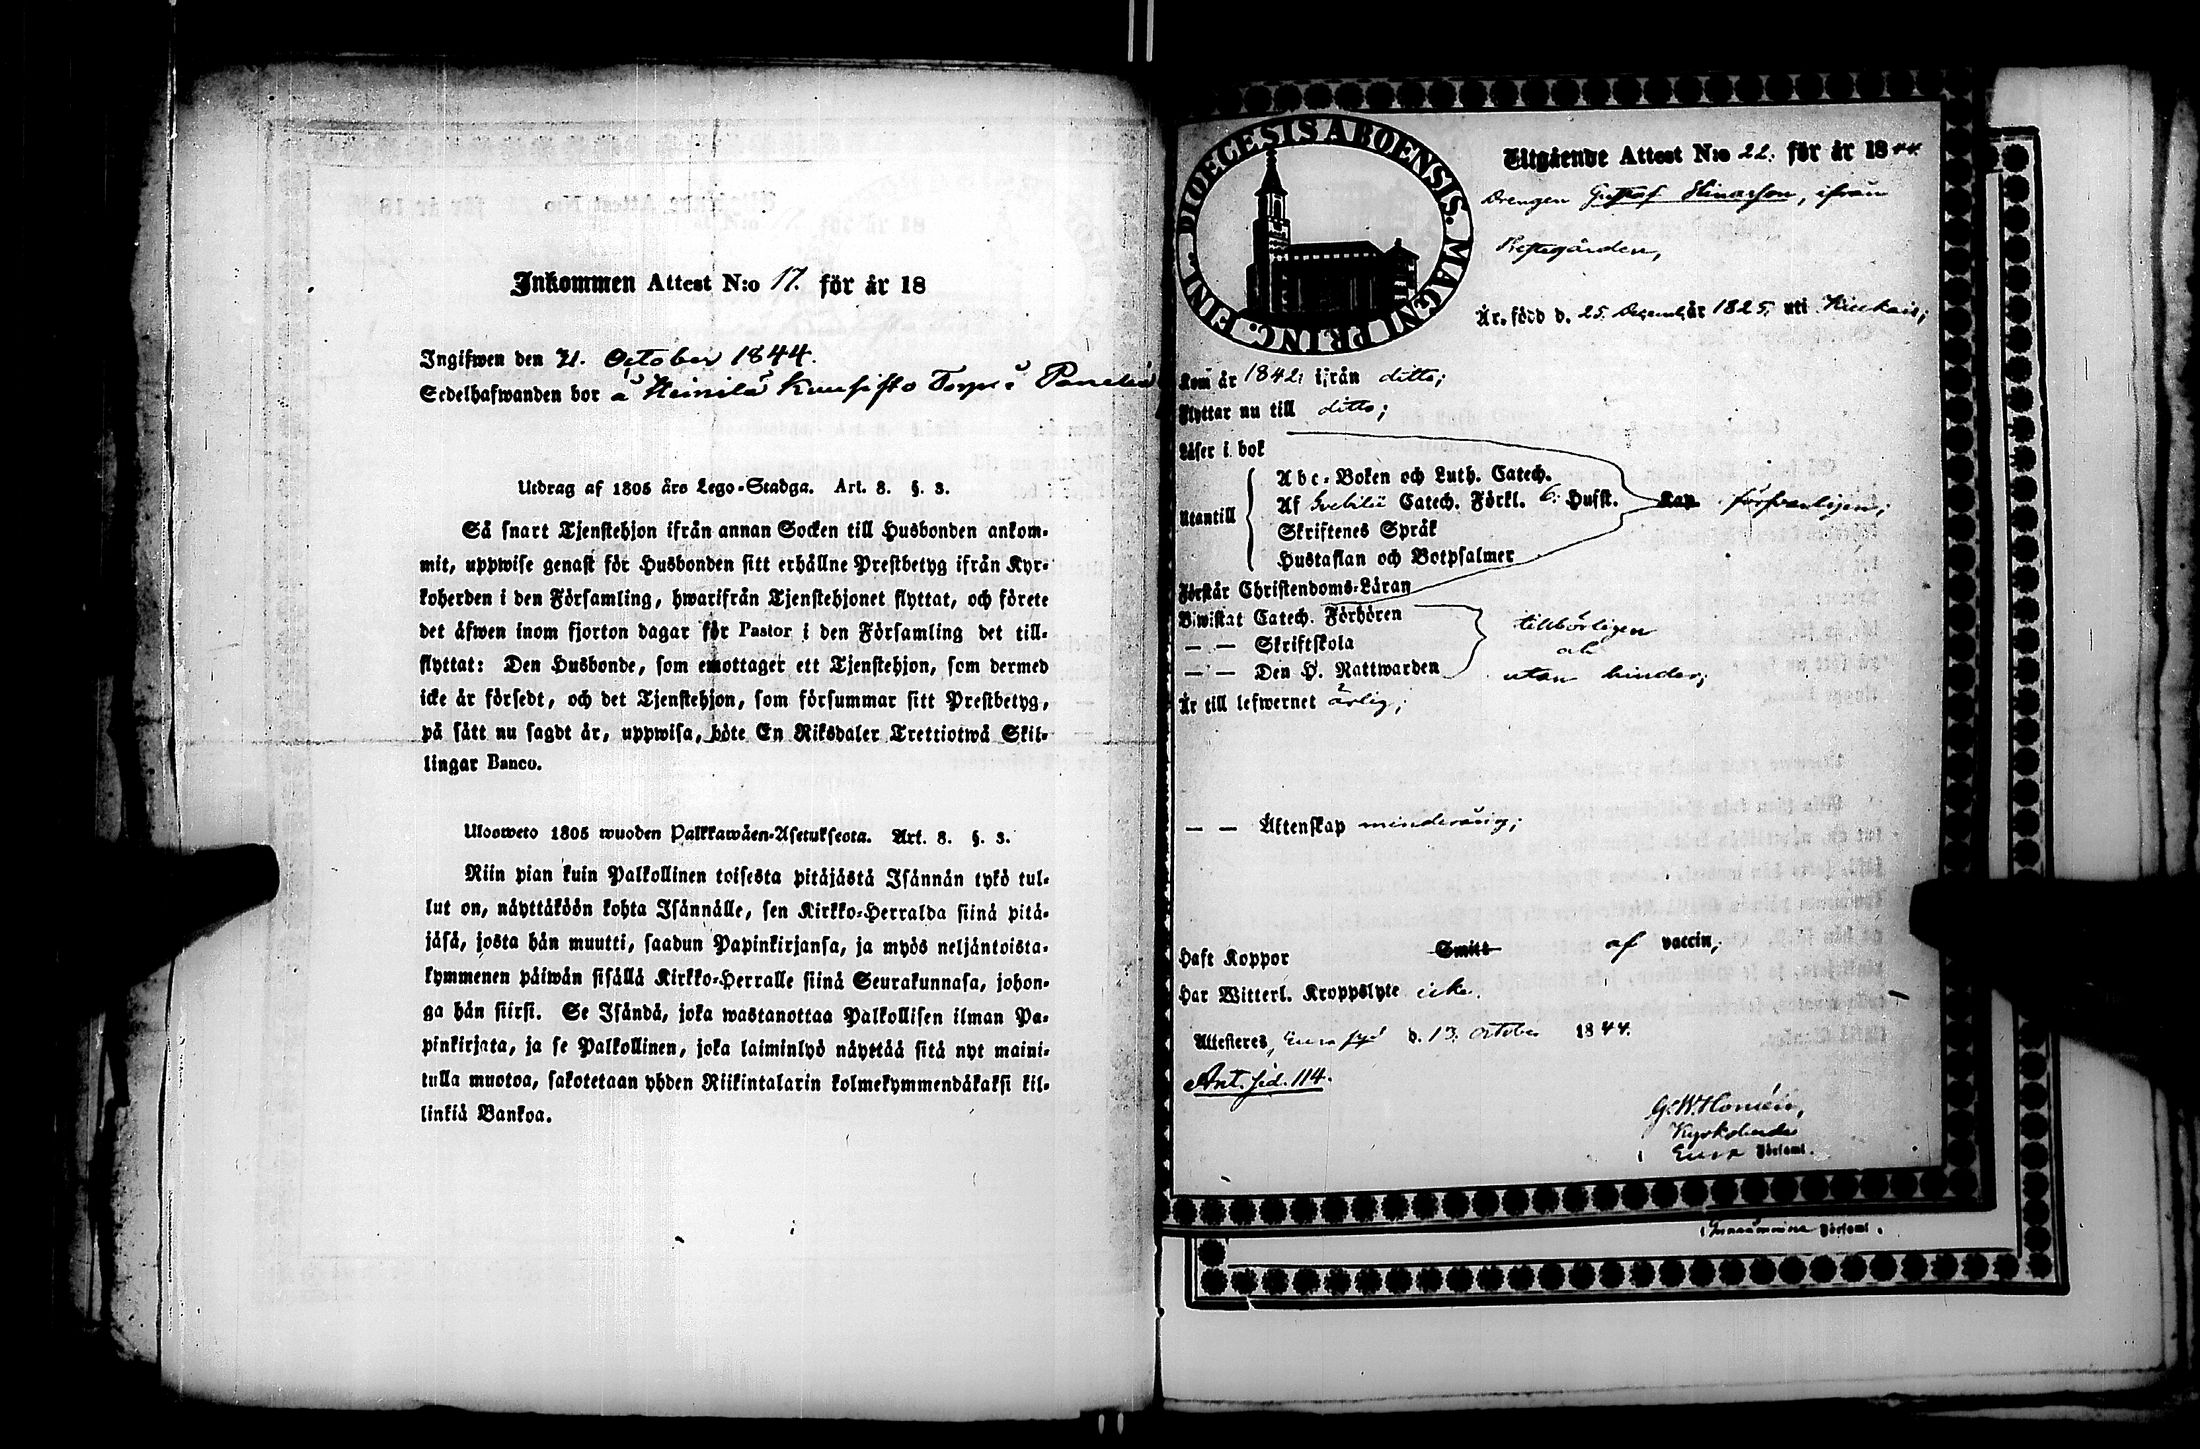 Inkommen Attest N:o 17. för år 18
Ingifwen den 21. October 1844.
Sedelhafwanden bor å Heinilä Kuusisto Torp i Panelia
Utdrag af 1805 års Lego-Stadga. Art. 8. §. 3.
Så snart Tjenstehjon ifrån annan Socken till Husbonden ankom-
mit, uppwise genast för Husbonden sitt erhållne Prestbetyg ifrån Kyr-
koherden i den Församling, hwarifrån Tjenstehjonet flyttat, och förete
det äfwen inom fjorton dagar för Pastor i den Församling det till-
flyttat: Den Husbonde, som emottager ett Tjenstehjon, som dermed
icke är försedt, och det Tjenstehjon, som försummar sitt Prestbetyg,
på sätt nu sagdt är, uppwisa, böte En Riksdaler Trettiotwå Skil-
lingar Banco.
Ulosweto 1805 wuoden Palkkawäen-Asetuksesta. Art. 8. §. 3.
Niin pian kuin Palkollinen toisesta pitäjästä Isännän tykö tul-
lut on, näyttäköön kohta Isännälle, sen Kirkko-Herralda siinä pitä-
jäsä, josta hän muutti, saadun Papinkirjansa, ja myös neljäntoista-
kymmenen päiwän sisällä Kirkko-Herralle siinä Seurakunnasa, johon-
ga hän siirsi. Se Isändä, joka wastanottaa Palkollisen ilman Pa-
pinkirjata, ja se Palkollinen, joka laiminlyö näyttää sitä nyt maini-
tulla muotoa, sakotetaan yhden Riikintalarin kolmekymmendäkaksi kil-
linkiä Bankoa.
DIOECESIS ABOENSIS. MAGNI PRINC. FINL.
Utgående Attest N:o 22. för år 1844.
Drengen Gustaf Hinarsson, ifrån
Prestegården,
Är född d. 25. Decemb. år 1825, uti Kiukais;
Kom år 1842, ifrån ditto;
Flyttar nu till ditto;
Läser i bok
Utantill
Abc-Boken och Luth. Catech.
Af Svebilii Catech. Förkl. 6. Hufst. Kap försvarligen;
Skriftenes Språk
Hustaflan och Botpsalmer
Förstår Christendoms-Läran
Biwistat Catech. Förhören
— — Skriftskola
— — Den H. Nattwarden
tillbörligen
och
utan hinder;
Är till lefwernet ärlig;
— — Äktenskap minderårig;
Haft Koppor Smitt af vaccin;
Har Witterl. Kroppslyte icke.
Attesteres, Eura d. 13. October 1844.
Ant. sid. 114.
G. W. Homén,
Kyrkoherde
i Eura Församl.
i Församl.